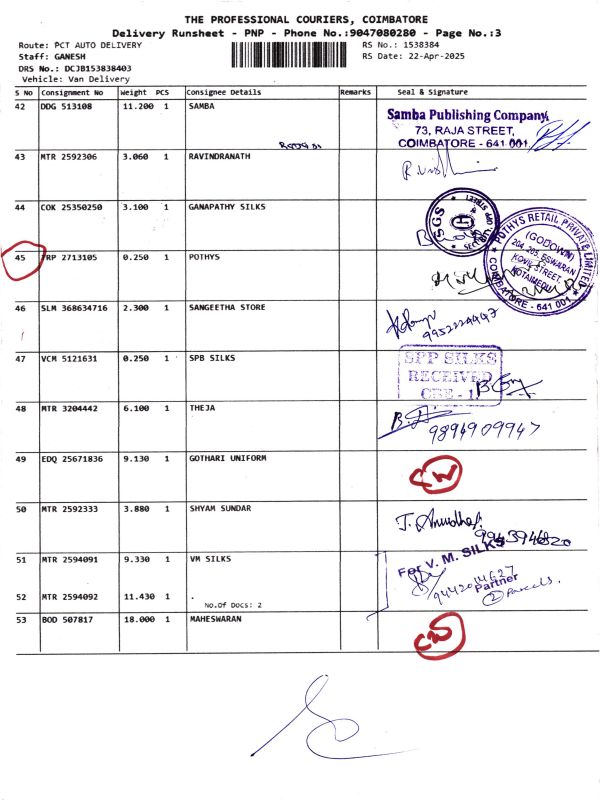 THE PROFESSIONAL COURIERS, COIMBATORE
Delivery Runsheet - PNP - Phone No.:9047080280 - Page No.:3
Route: PCT AUTO DELIVERY
RS No.: 1538384
Staff: GANESH
RS Date: 22-Apr-2025
DRS No.: DCJB153838403
Vehicle: Van Delivery
S No Consignment No Weight PCS Consignee Details Remarks Seal & Signature
42 DDG 513108 11.200 1 SAMBA
Samba Publishing Company,
73, RAJA STREET,
COIMBATORE - 641 001.
43 MTR 2592306 3.060 1 RAVINDRANATH
44 COK 25350250 3.100 1 GANAPATHY SILKS
SGS
45 TRP 2713105 0.250 1 POTHYS
POTHYS RETAIL PRIVATE LIMITED
(GODOWN)
204, 205, ESWARAN
KOVIL STREET,
KOTAIMEDU
COIMBATORE - 641 001
46 SLM 368634716 2.300 1 SANGEETHA STORE
9952224447
47 VCM 5121631 0.250 1 SPB SILKS
SPP SILKS
RECEIVED
CBE - 1
48 MTR 3204442 6.100 1 THEJA
9894909947
49 EDQ 25671836 9.130 1 GOTHARI UNIFORM
50 MTR 2592333 3.880 1 SHYAM SUNDAR
9943946820
51 MTR 2594091 9.330 1 VM SILKS
For V. M. SILKS
9442014627
Partner
2 Parcels.
52 MTR 2594092 11.430 1 .
No.Of Docs: 2
53 BOD 507817 18.000 1 MAHESWARAN